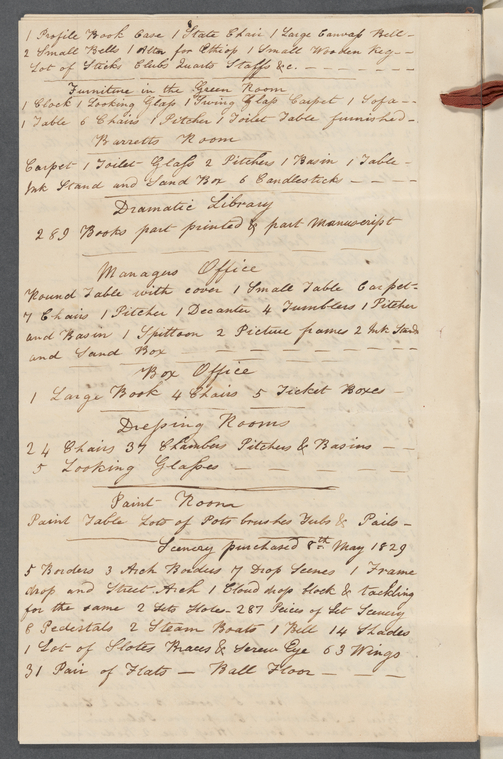 1 Profile Book Case 1 State Chair 1 Large Canvass Bell -
2 Small Bells 1 Alter for Ethiop 1 Small Wooden Key - -
Lot of Sticks Clubs Quarto Staffs &c. - - - - -
Furniture in the Green Room
1 Clock 1 Looking Glass 1 Swing Glass Carpet 1 Sofa - -
1 Table 6 Chairs 1 Pitcher 1 Toilet Table furnished -
Barretts Room
Carpet 1 Toilet Glass 2 Pitchers 1 Basin 1 Table -
Ink Stand and Sand Box 6 Candlesticks - - - -
Dramatic Library
289 Books part printed & part Manuscript
Managers Office
Round Table with cover 1 Small Table Carpet -
7 Chairs 1 Pitcher 1 Decanter 4 Tumblers 1 Pitcher
and Basin 1 Spittoon 2 Picture frames 2 Ink Stands
and Sand Box - - - - - - -
Box Office
1 Large Book 4 Chairs 5 Ticket Boxes -
Dressing Rooms
24 Chairs 37 Chambers Pitchers & Basins - -
5 Looking Glasses - - - - -
Paint Room
Paint Table Lots of Pots brushes Tubs & Pails -
Scenery purchased 8th May 1829
5 Borders 3 Arch Borders 7 Drop Scenes 1 Frame
drop and Street Arch 1 Cloud drop block & tackling
for the same 2 Sets 287 Peices of Set Scenery
8 Pedestals 2 Steam Boats 1 Bell 14 Shades
1 Lot of Slotes Braces & Screw Eye 63 Wings
31 Pair of Flats - Ball Floor - - - -